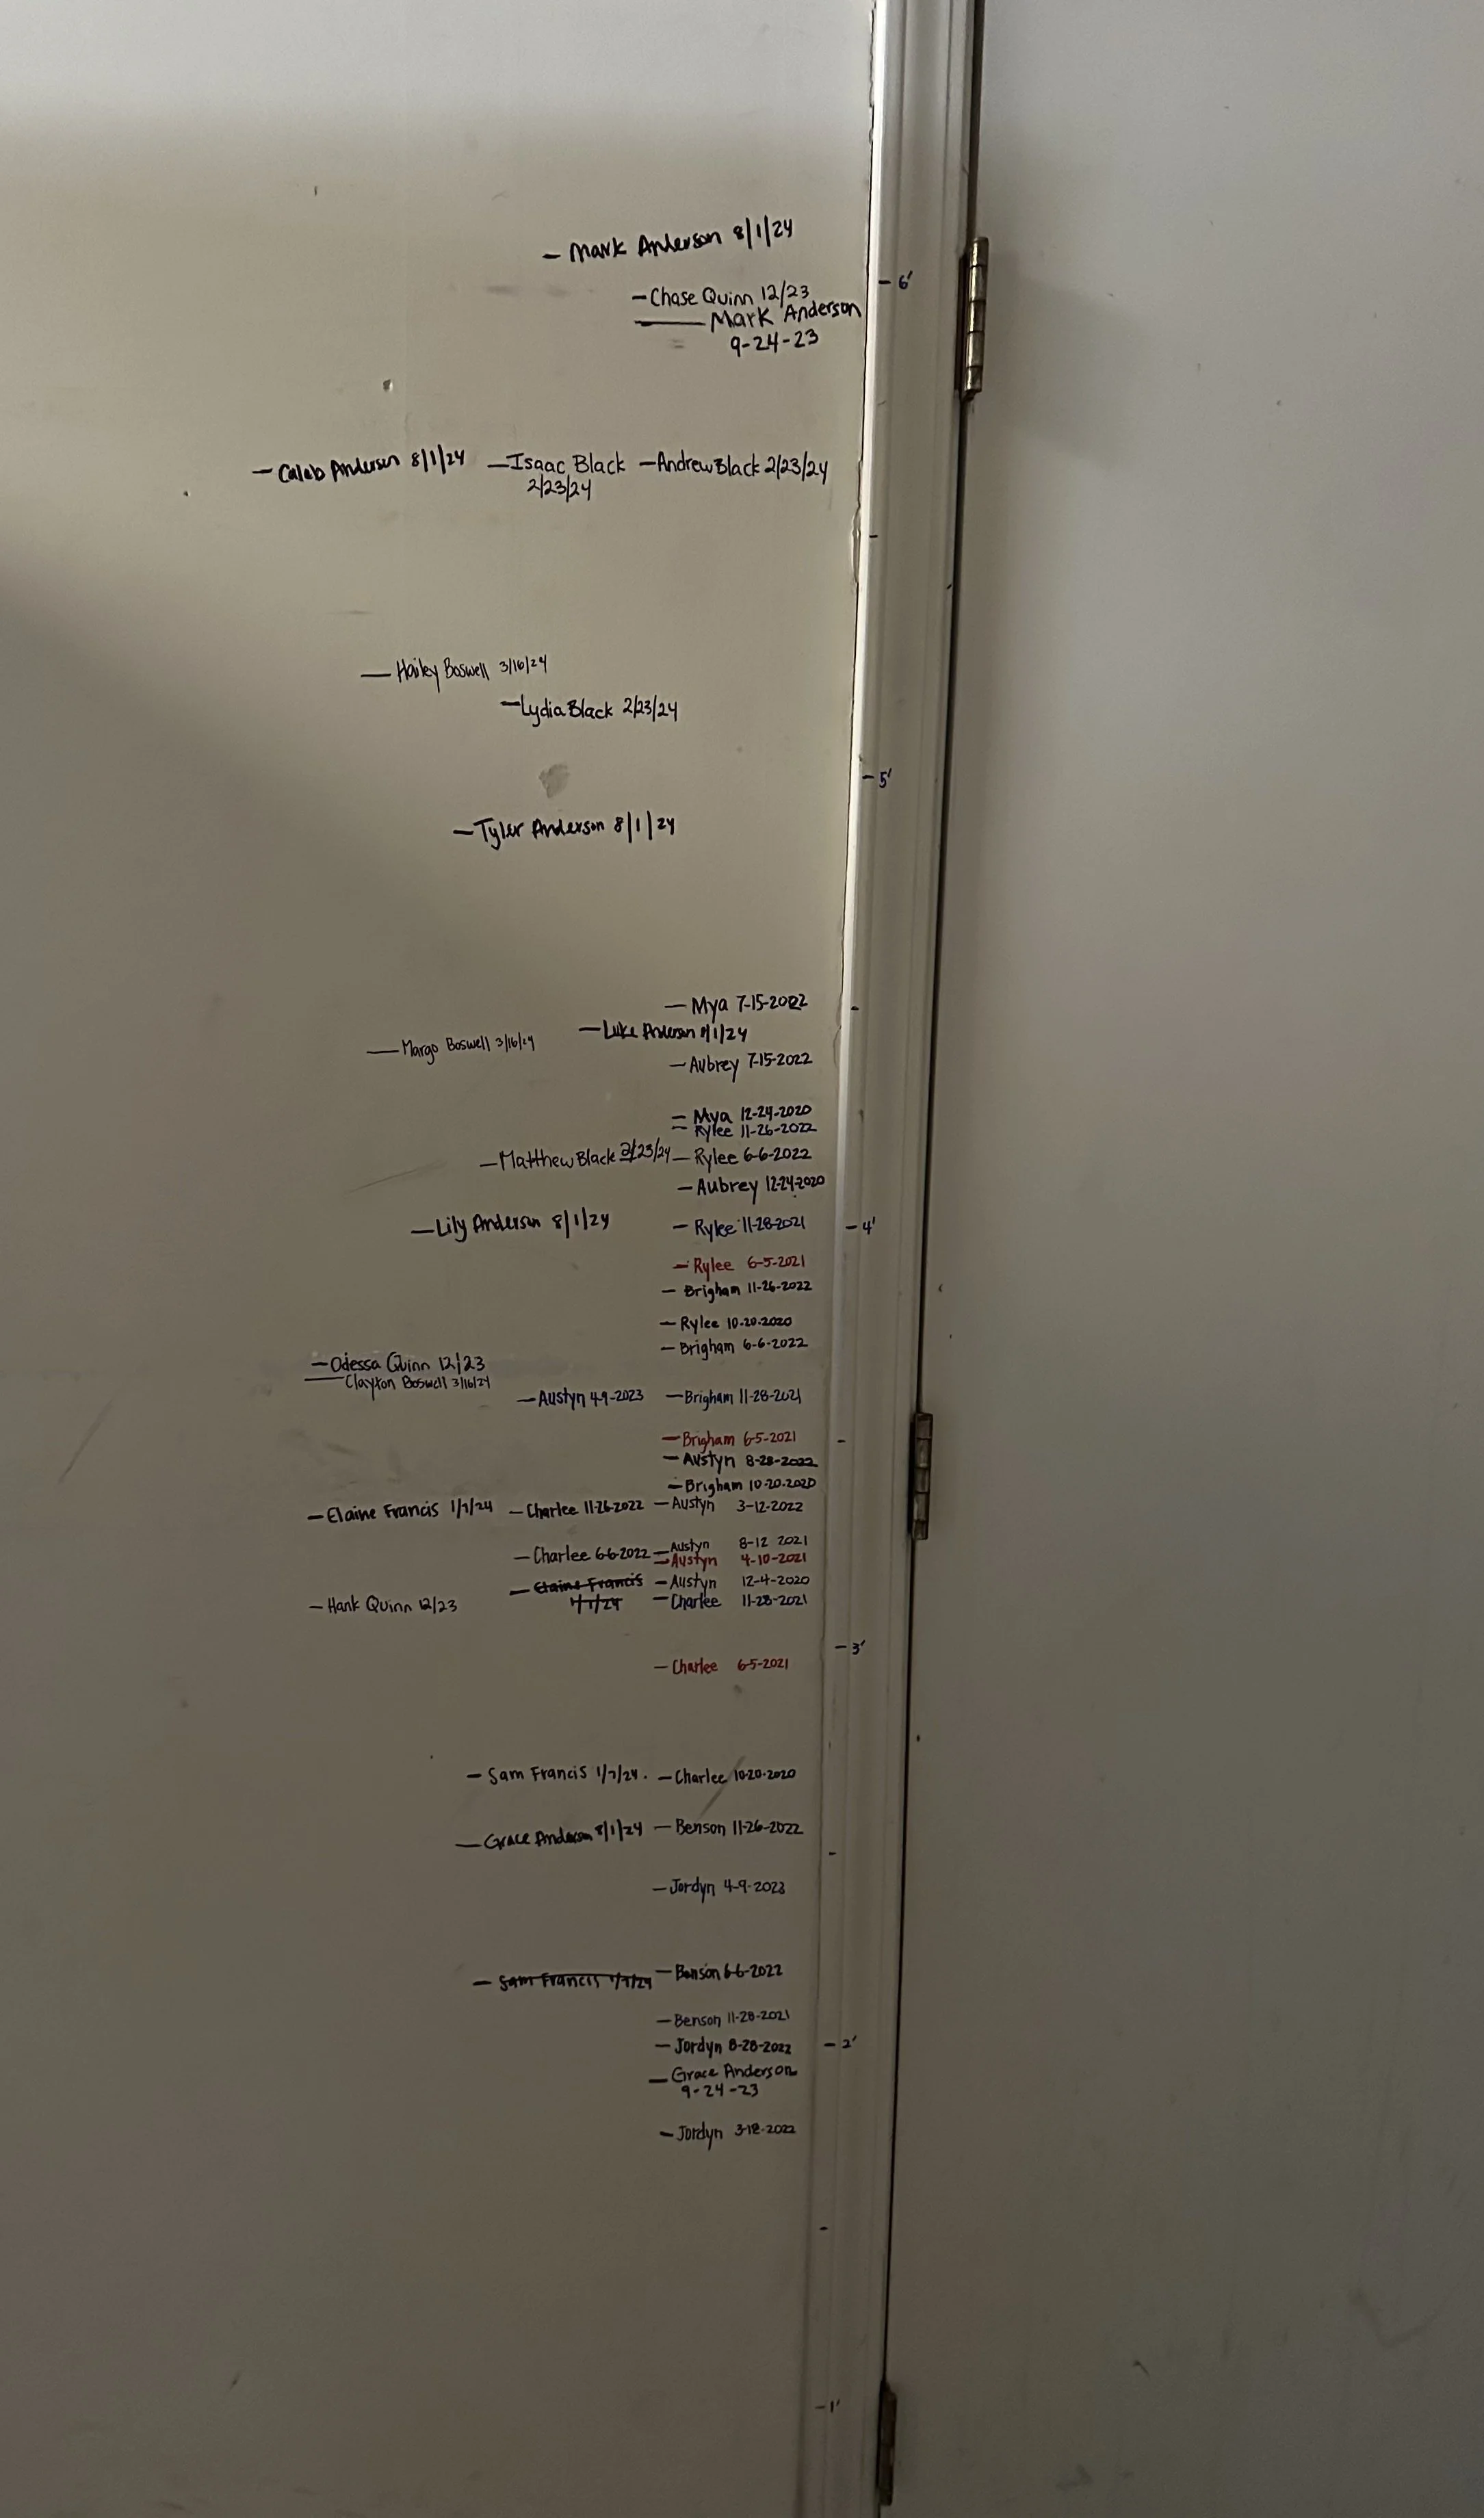 - Mark Anderson 8/1/24
- 6'
- Chase Quinn 12/23
- Mark Anderson
9-24-23
- Caleb Anderson 8/1/24 - Isaac Black - Andrew Black 2/23/24
2/23/24
- Hailey Boswell 3/16/24
- Lydia Black 2/23/24
- 5'
- Tyler Anderson 8/1/24
- Mya 7-15-2022
- Luke Anderson 8/1/24
- Margo Boswell 3/16/24
- Aubrey 7-15-2022
- Mya 12-24-2020
- Rylee 11-26-2022
- Matthew Black 2/23/24 - Rylee 6-6-2022
- Aubrey 12-24-2020
- Lily Anderson 8/1/24 - Rylee 11-28-2021 - 4'
- Rylee 6-5-2021
- Brigham 11-26-2022
- Rylee 10-20-2020
- Brigham 6-6-2022
- Odessa Quinn 12/23
- Clayton Boswell 3/16/24
- Austyn 4-9-2023 - Brigham 11-28-2021
- Brigham 6-5-2021
- Austyn 8-28-2022
- Brigham 10-20-2020
- Elaine Francis 1/7/24 - Charlee 11-26-2022 - Austyn 3-12-2022
- Charlee 6-6-2022 - Austyn 8-12 2021
- Austyn 4-10-2021
- Elaine Francis - Austyn 12-4-2020
1/7/24
- Hank Quinn 12/23 - Charlee 11-28-2021
- 3'
- Charlee 6-5-2021
- Sam Francis 1/7/24. - Charlee 10-20-2020
- Grace Anderson 8/1/24 - Benson 11-26-2022
- Jordyn 4-9-2023
- Sam Francis 1/7/24 - Benson 6-6-2022
- Benson 11-28-2021
- Jordyn 8-28-2022 - 2'
- Grace Anderson
9-24-23
- Jordyn 3-12-2022
- 1'